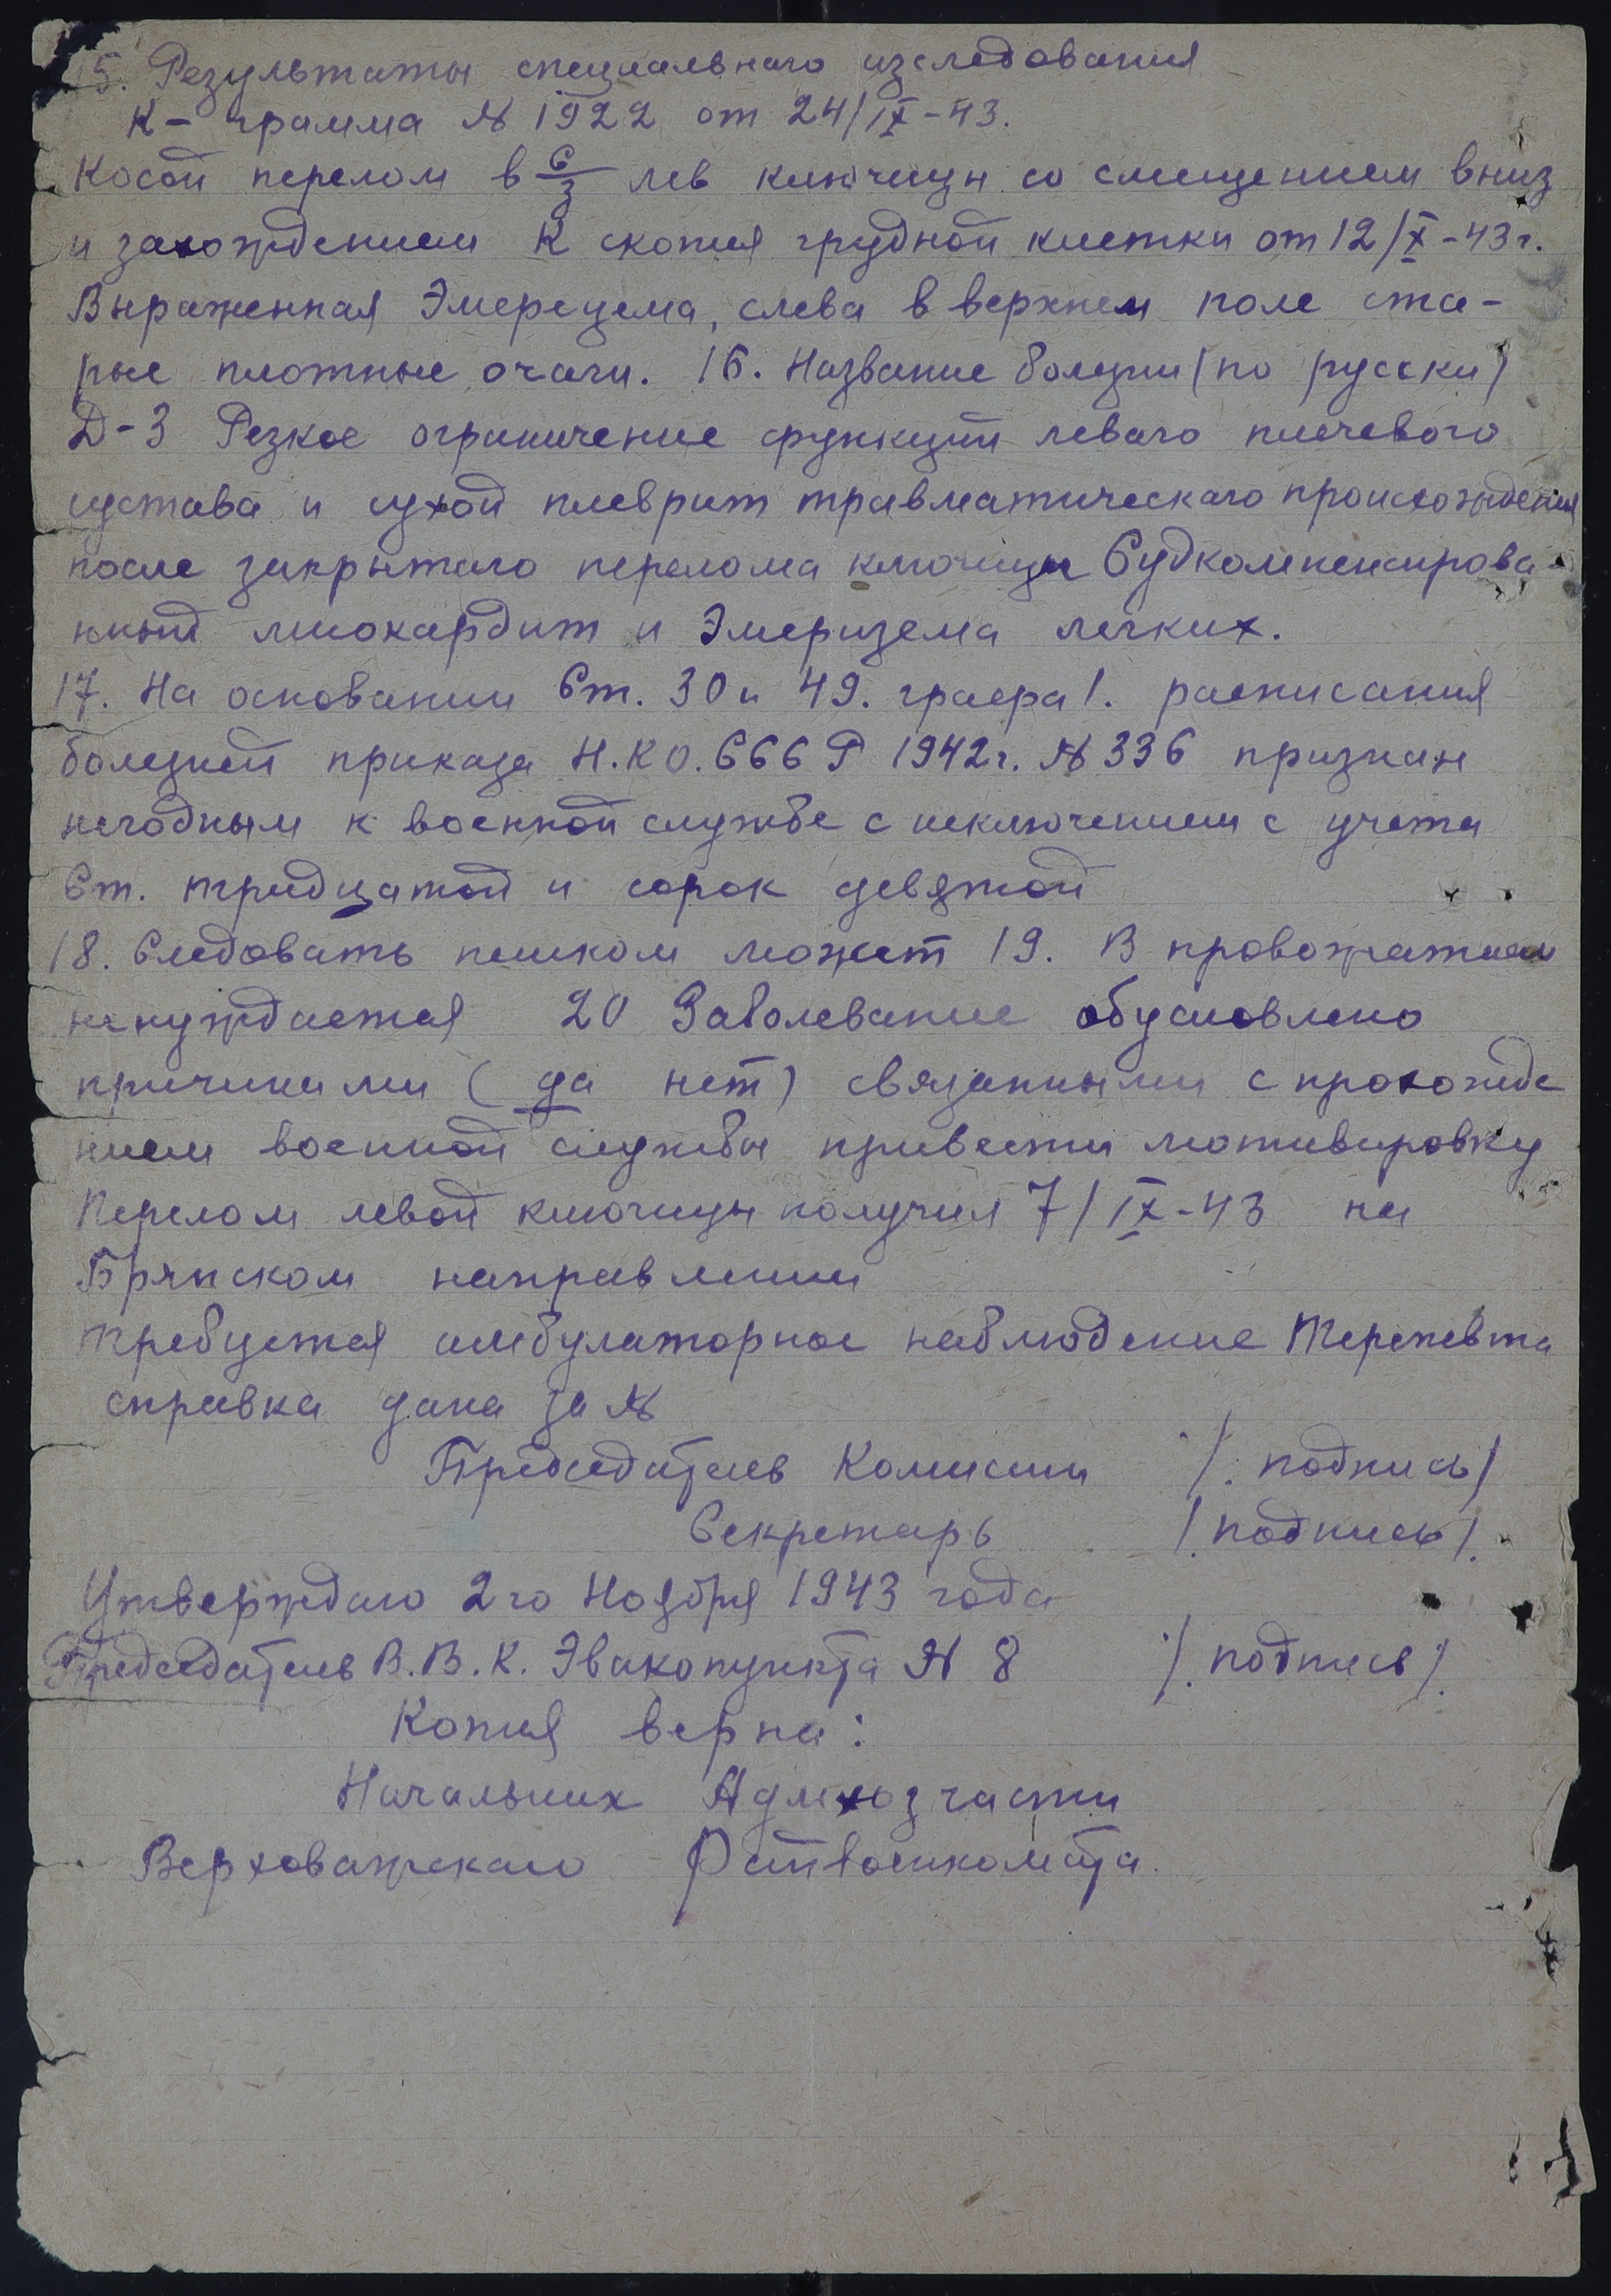 15. Результаты специальнаго изследования
К- грамма № 1922 от 24/IX-43.
Косой перелом в С/3 лев ключицы со смещением вниз
и захождением К скопия грудной клетки от 12/X-43г.
Выраженная Эмерецема, слева в верхнем поле ста-
рые плотные очаги. 16. Название болезни (по русски)
Д-З Резкое ограничение функций леваго плечевого
сустава и сухой плеврит травматическаго происхождения
после закрытаго перелома ключицы Судкомпенсирова-
нный миокардит и Эмеризема легких.
17. На основании Ст. 30 и 49. графа 1. расписания
болезней приказа Н.К О. СССР 1942г. № 336 признан
негодным к военной службе с исключением с учета
Ст. тридцатой и сорок девятой
18. Следовать пешком может 19. В провожатием
ненуждается 20 Заболевание обусловлено
причинами (да нет) связанными с прохожде
нием военной службы привести мотивировку
Перелом левой ключицы получил 7/IX-43 на
Брянском направлении
требуется амбулаторное наблюдение Терапевта
справка дана за №
Председатель Комиссии /. подпись/
Секретарь /. подпись/.
Утверждаю 2го Ноября 1943 года
Председатель В.В.К. Эвакопункта № 8 /. подпись/.
Копия верна:
Начальник Админхозчасти
Верховажскаго Райвоенкомата.